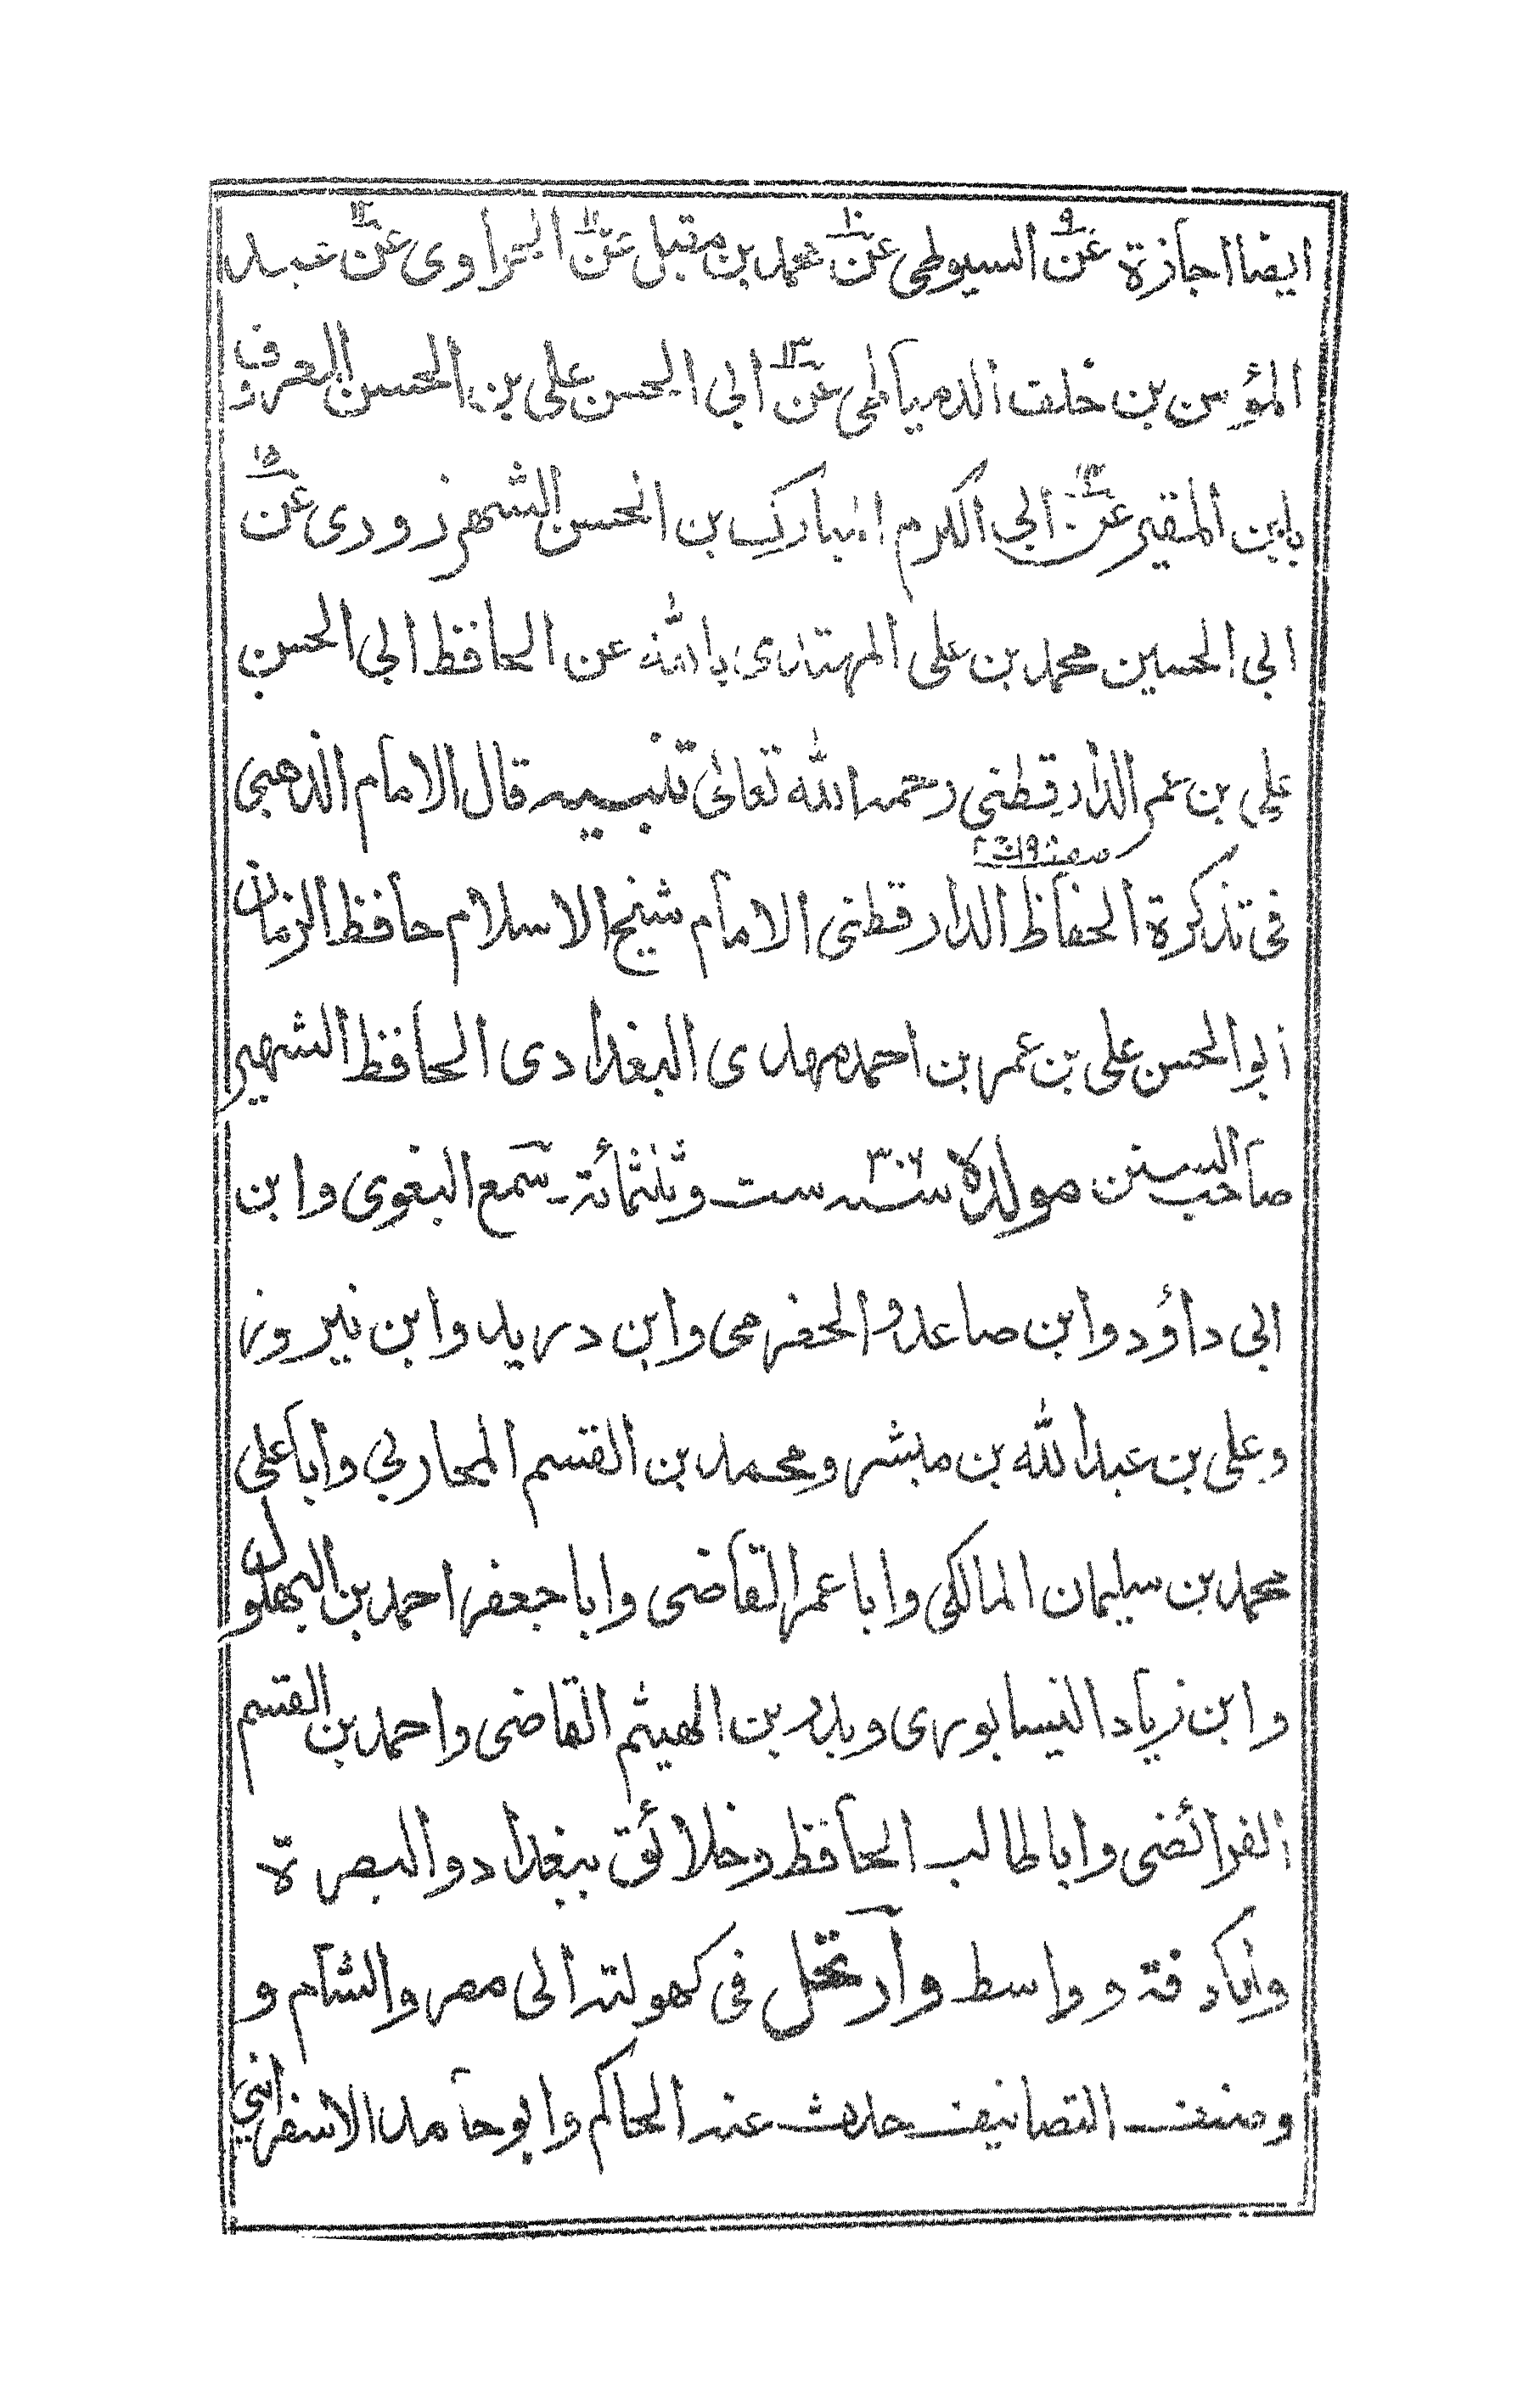 ايضا اجازة عن٩ السيوطي عن١٠ محمد بن مقبل عن١١ الحراوى عن١٢ عبد
المؤمن بن خلف الدمياطي عن١٣ ابي الحسن علي بن الحسن المعروف
بابن المقير عن١٤ ابي الكرم المبارك بن الحسن الشهرزورى عن١٥
ابى الحسين محمد بن على المهتدى بالله عن الحافظ ابي الحسن
علي بن عمر الدارقطني رحمه الله تعالى تنبيه قال الامام الذهبي
فى تذكرة الحفاظ الدارقطنى الامام شيخ الاسلام حافظ الزمان
ابو الحسن على بن عمر بن احمد مهدى البغدادى الحافظ الشهير
صاحب السنن مولده سنه ٣٠٦ ست وثلثمائة سمع البغوى وابن
ابى داؤد وابن صاعد والحضرمى وابن دريد وابن نيروز
وعلى بن عبد الله بن مبشر ومحمد بن القسم المحاربي وابا علي
محمد بن سليمان المالكى وابا عمر القاضى وابا جعفر احمد بن البهلول
وابن زياد النيسابورى وبدر بن الهيثم القاضى واحمد بن القسم
الفرائضى وابا طالب الحافظ وخلائق ببغداد والبصرة
والكوفة وواسط وارتحل فى كهولته الى مصر والشام و
وصنف التصانيف حدث عنه الحاكم وابو حامد الاسفرائني